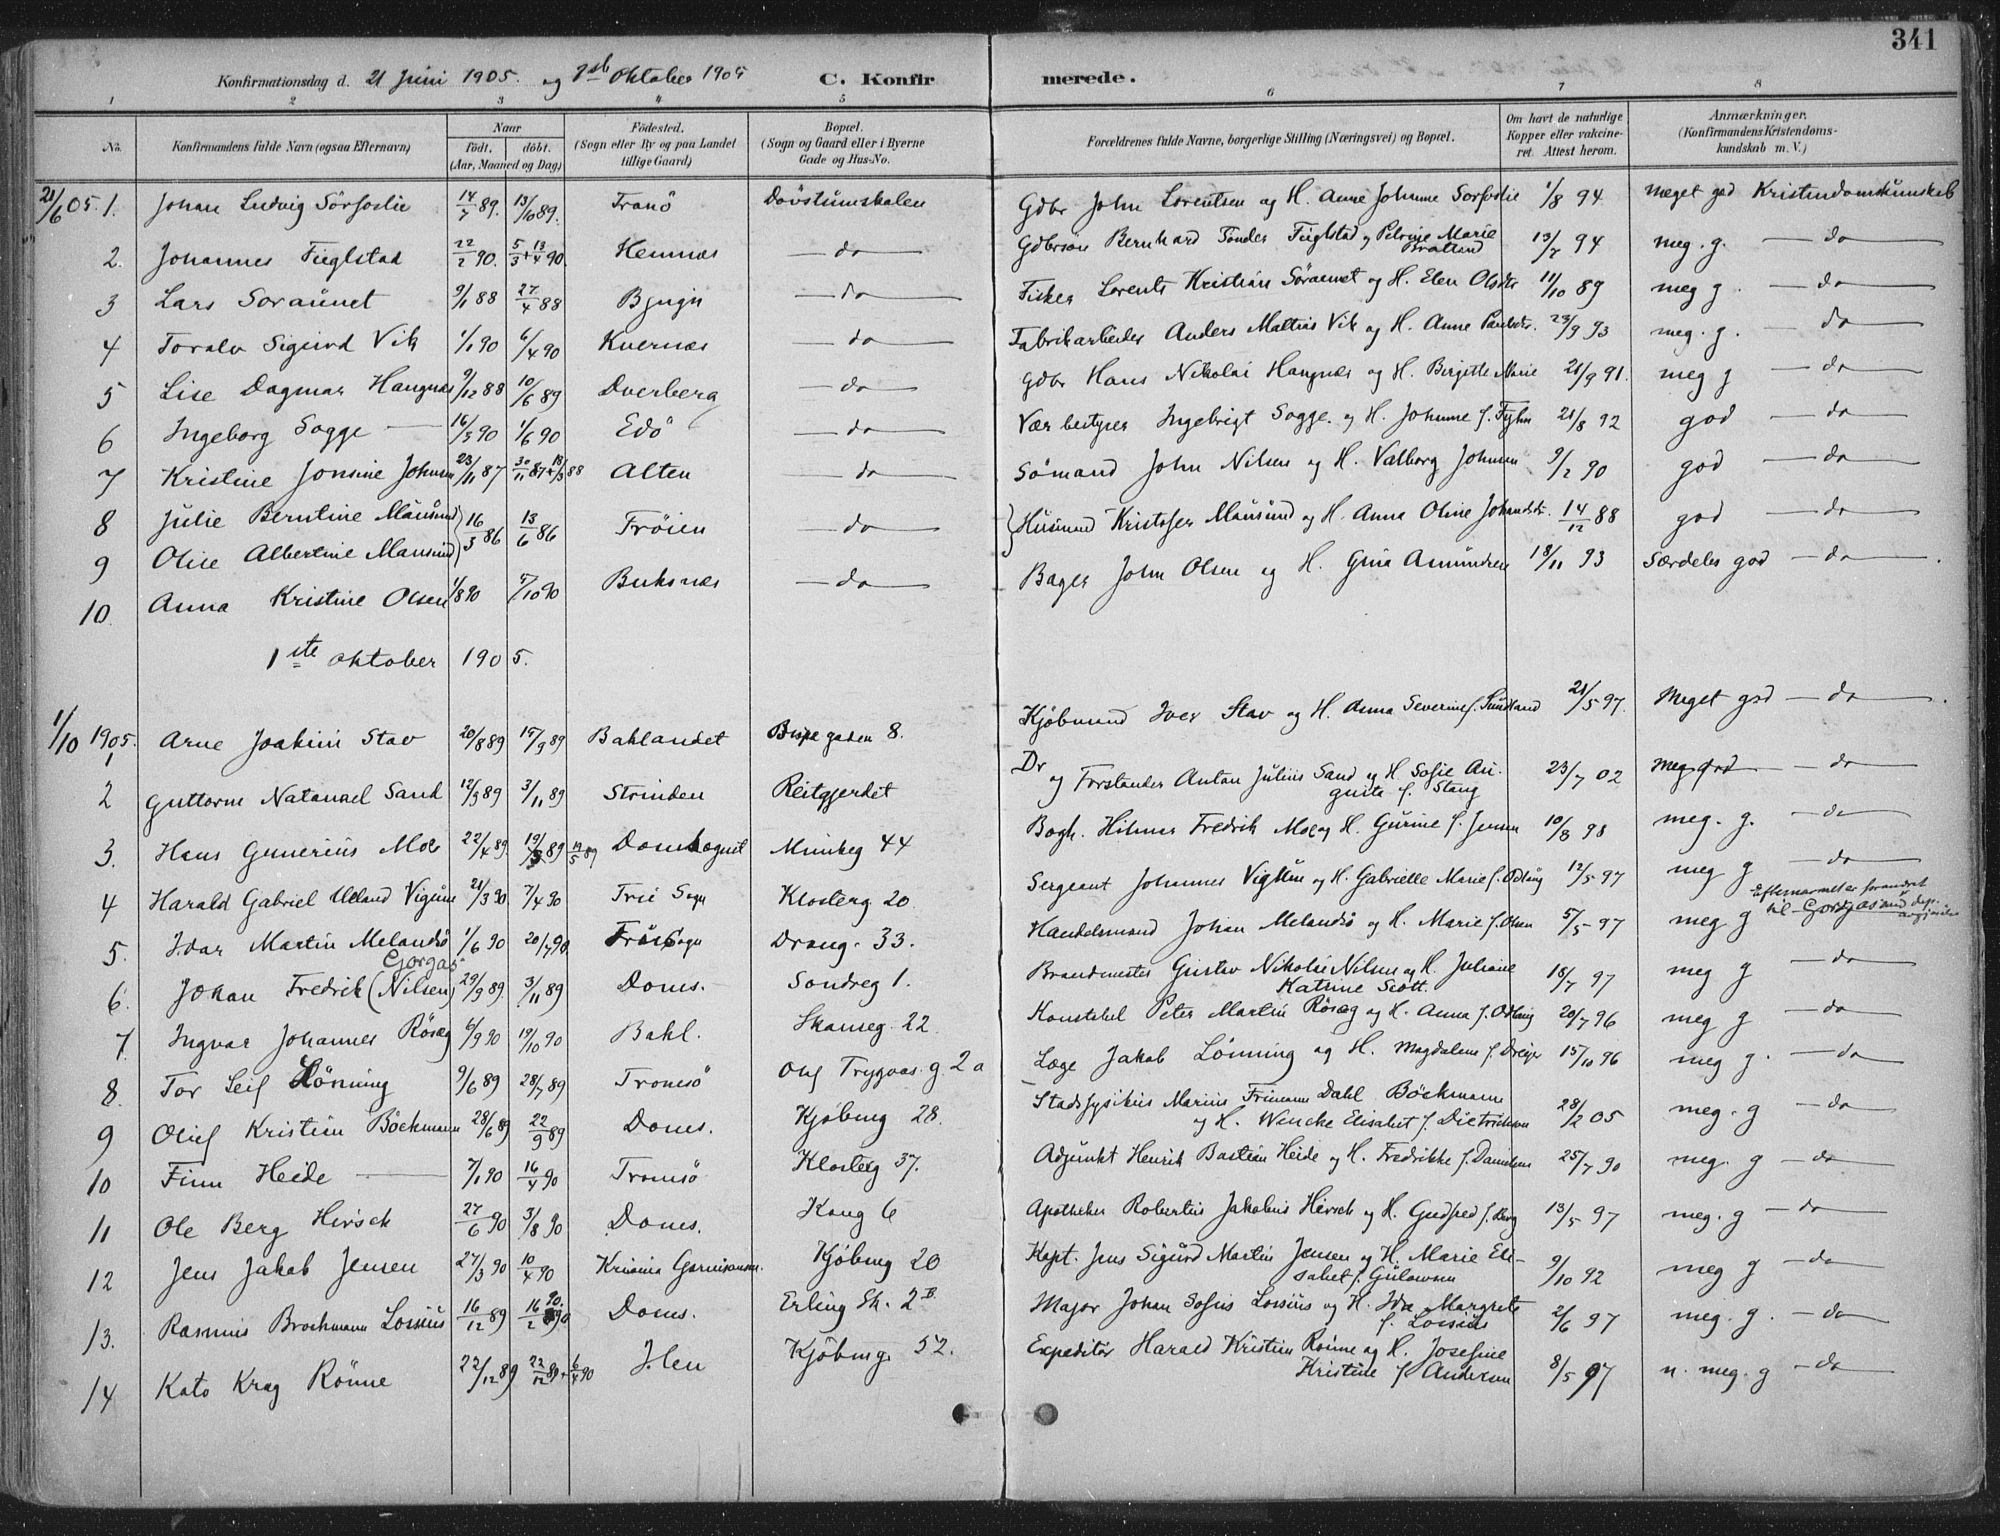 341
Konfirmationsdag d. 21 Juni 1905. og 1ste Oktober 1905 C. Konfirmerede.
1 2 3 4 5 6 7 8
No. Konfirmandens fulde Navn (ogsaa Efternavn) Naar født, døbt. (Aar, Maaned og Dag) Fødested. (Sogn eller By og paa Landet tillige Gaard) Bopæl. (Sogn og Gaard eller i Byerne Gade og Hus-No. Forældrenes fulde Navne, borgerlige Stilling (Næringsvei) og Bopæl. Om havt de naturlige Kopper eller vakcineret. Attest herom. Anmærkninger. (Konfirmandens Kristendomskundskab m. V.)
21/6 05. 1. Johan Ludvig Sörfoslie 14/7 89. 13/10 89. Tranö Dövstumskolen Gdbr John Lorentsen og H. Anne Johanne Sorfoslie 1/8 94 Meget god Kristendomskunskab
2. Johannes Fuglstad 22/2 90. 5/3 + 13/4 90. Hemnæs — do — Gdbrsön Bernhard Tönder Fuglstad og Petrine Marie Bratland 13/7 94 meg. g. — do —
3 Lars Soraunet 9/1 88 27/4 88 Bjugn — do — Fisker Lorents Kristian Söraunet og H. Elen Olsdtr 11/10 89 meg g. — do —
4 Toralv Sigurd Vik 1/1 90 6/4 90 Kvernæs — do — Fabrikarbeider Anders Mattias Vik og H. Anne Paulsdtr. 23/9 93 meg. g. — do
5 Lise Dagmar Haugnæs 9/12 88 10/6 89 Dverberg — do — Gdbr Hans Nikolai Haugnæs og H. Birgitte Marie 21/9 91. meg g — do —
6 Ingeborg Sogge — 16/3 90 1/6 90 Edö — do — Værbestyrer Ingebrigt Sogge. og H. Johanne f. Fyhn 21/8 92 god — do —
7 Kristine Jonsine Johnsen 23/11 87 30/11 87 + 18/3 88 Alten — do — Sömand John Nilsen og H. Valborg Johnsen 9/2 90 god — do —
8 Julie Berntine Mausund } 16/3 86 13/6 86 Fröien — do — } Husmand Kristofer Mausund og H. Anna Oline Johansdtr. 14/12 88 god — do —
9 Olise Albertine Mausund
10 Anna Kristine Olsen 1/8 90 5/10 90 Buksnæs — do — Bager John Olsen og H. Gina Amundsen 18/11 93 Særdeles god — do —
1ste Oktober 1905.
1/10 1905. 1 Arne Joakim Stav 20/8 89 15/9 89 Baklandet Bispegaden 8. Kjöbmand Iver Stav og H. Anna Severine f. Sundland 21/5 97. Meget god — do —
2 Guttorm Natanael Sand 12/9 89 3/11 89 Strinden Reitgjerdet Dr og Forstander Anton Julius Sand og H. Sofie Augusta f. Stang 23/7 02 Meg god — do —
3. Hans Gunerius Moe 22/4 89. 19/5 89 19/5 89 Domsognet Munkeg 44 Bogh. Hilmar Fredrik Moe og H. Gurine f. Jensen 10/8 98 meg. g. — do —
4 Harald Gabriel Ulland Viglun 21/3 90 7/4 90 Frue Sogn Klosterg 20 Sergeant Johannes Viglun og H. Gabrielle Marie f. Ödling 12/5 97 meg g — do —
5. Idar Martin Melandsö 1/6 90 20/7 90 Frue Sogn Drong. 33. Handelsmand Johan Melandsö og H. Marie f. Olsen 5/5 97 meg g Efternavnet er forandret til Gorgas
6. Johan Fredrik (Nilsen) Gorgas 23/9 89. 3/11 89 Doms. Sondreg 1. Brandmester Gustav Nikolai Nilsen og H. Juliane Katrine Scott. 18/7 97 meg g — do —
7. Ingvar Johannes Rösæg 6/9 90 19/10 90 Bakl. Skanseg. 22. Konstabel Peter Martin Rösæg og H. Anna f. Ödling 20/7 96 meg g — do —
8. Tor Leif Lönning 9/6 89 28/7 89 Tromsö Olaf Trygvas. g. 2 a Læge Jakob Lönning og H. Magdalene f. Dreyer 15/10 96 meg g. — do
9 Oluf Kristian Böckmann 28/6 89 22/9 89 Doms. Kjöbmg 28. Stadsfysikus Marius Frimann Dahl Böckmann og H. Wencke Elisabet f. Dietrichson 28/2 05 meg. g — do —
10 Finn Heide — 7/1 90 16/4 90 Tromsö Klosterg 37. Adjunkt Henrik Bastian Heide og H. Fredrikke f. Danielsen 25/7 90 meg. g — do —
11 Ole Berg Hirsch 27/6 90 3/8 90 Doms. Kong 6 Apotheker Robertus Jakobus Hirsch og H. Gudfred f. Berg 13/5 97 meg. g — do —
12 Jens Jakob Jensen 27/3 90 10/4 90 Kriania Garnisonsm. Kjöbmg 20 Kapt. Jens Sigurd Martin Jensen og H. Marie Elisabet f. Gulowsen 9/10 92 meg g — do —
13. Rasmus Brochmann Lossius 16/12 89 16/2 90. Doms. Erling Sk. 2B Major Johan Sofus Lossius og H. Ida Margrete f. Lossius 2/6 97 meg. g. — do —
14 Kato Krag Rönne 22/12 89 22/12 89 + 6/4 90 Ilen Kjöbmg. 52. Expeditör Harald Kristian Rönne og H. Josefine Kristine f Andersen 8/5 97 n. meg. g — do —